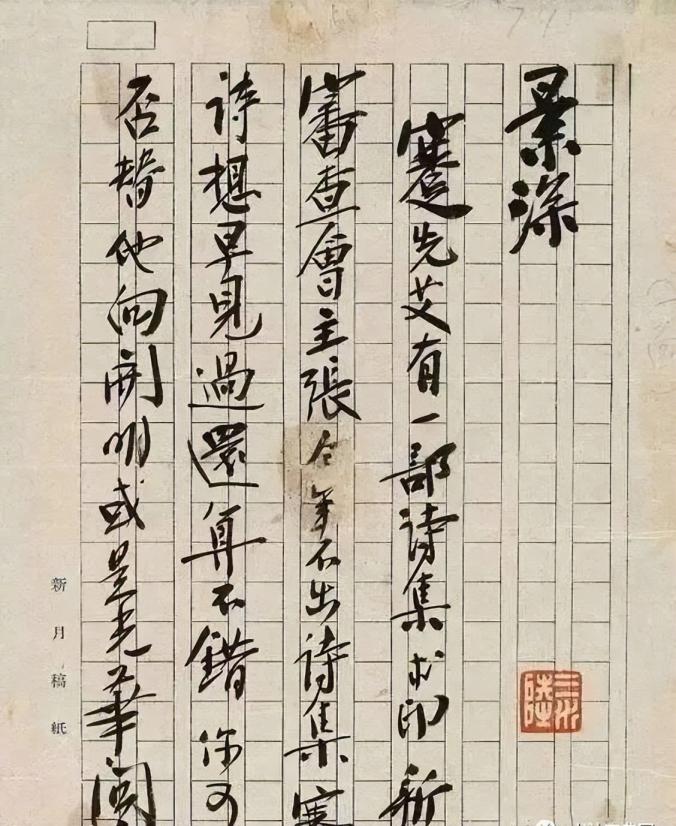 景深
蹇先艾有一部詩集求印新
審查會主張今年不出詩集蹇
詩想早見過還算不錯你可
否替他向開明或是光華
新月稿紙